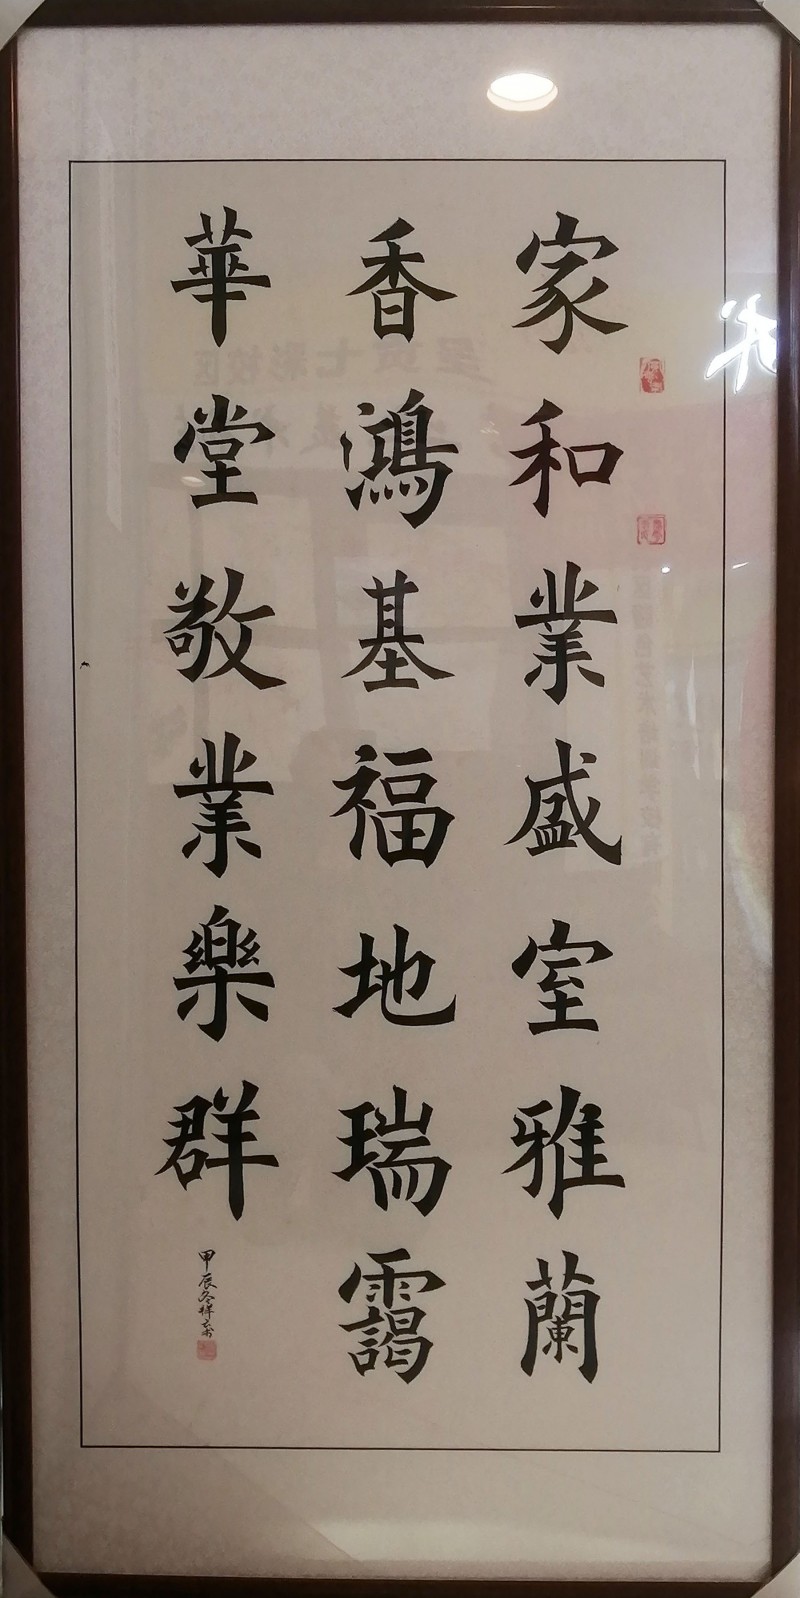 家和業盛室雅蘭
香鴻基福地瑞靄
華堂敬業樂群
甲辰冬祥云書